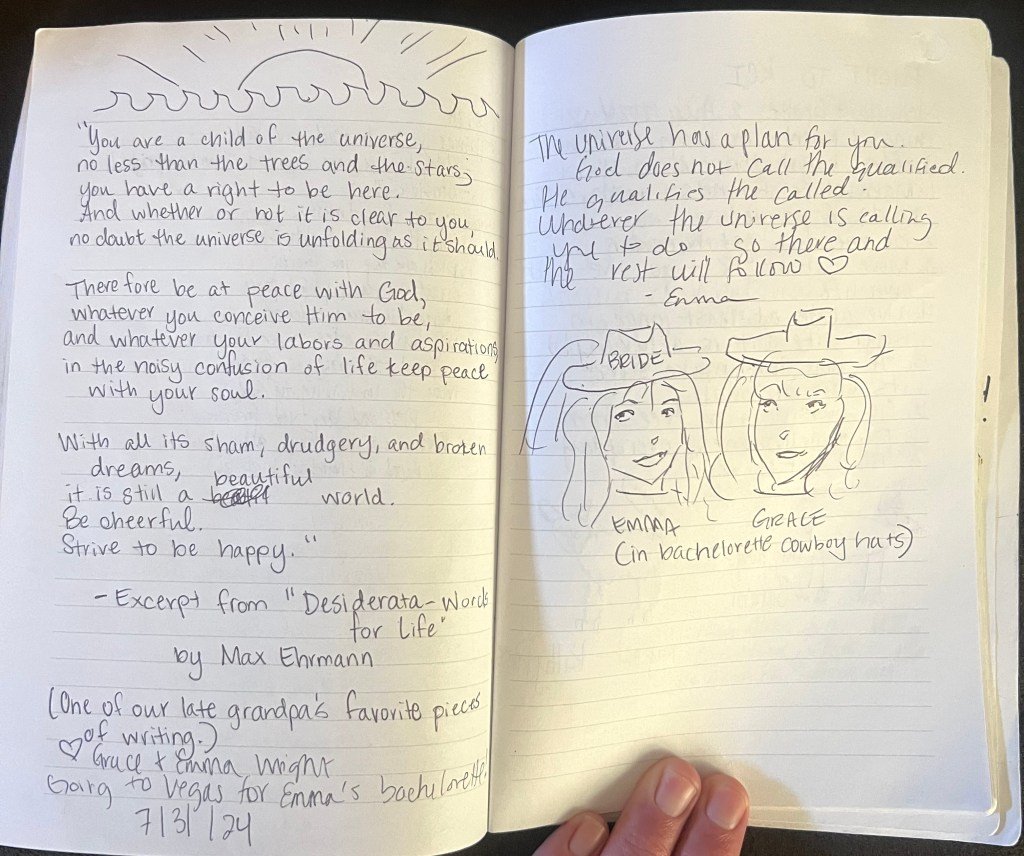 "You are a child of the universe,
no less than the trees and the stars;
you have a right to be here.
And whether or not it is clear to you,
no doubt the universe is unfolding as it should.
Therefore be at peace with God,
whatever you conceive Him to be,
and whatever your labors and aspirations,
in the noisy confusion of life keep peace
with your soul.
With all its sham, drudgery, and broken
dreams,
it is still a beautiful world.
Be cheerful.
Strive to be happy."
- Excerpt from "Desiderata - Words
for Life"
by Max Ehrmann
(One of our late grandpa's favorite pieces
of writing.)
♡ Grace + Emma Wright
Going to Vegas for Emma's bachelorette!
7/31/24
The universe has a plan for you.
God does not call the qualified.
He qualifies the called.
Whatever the universe is calling
you to do go there and
the rest will follow ♡
- Emma
BRIDE
EMMA GRACE
(in bachelorette cowboy hats)